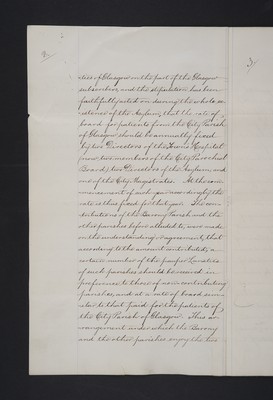 2.
3.
ities of Glasgow on the part of the Glasgow
subscribers, and this stipulation has been
faithfully acted on during the whole ex-
istence of the Asylum, that the rate of
board for patients from the City Parish
of Glasgow should be annually fixed
by two Directors of the Town's Hospital
(now two members of the City Parochial
Board) two Directors of the Asylum, and
one of the City Magistrates. At the com-
mencement of each year accordingly the
rate is thus fixed for that year. The con-
tributions of the Barony Parish and the
other parishes before alluded to, were made
on the understanding or agreement, that
according to the amount contributed, a
certain number of the pauper Lunatics
of such parishes should be received in
preference to those of non-contributing
parishes, and at a rate of board sim-
ilar to that paid for the patients of
the City Parish of Glasgow. This ar-
rangement under which the Barony
and the other parishes enjoy the two